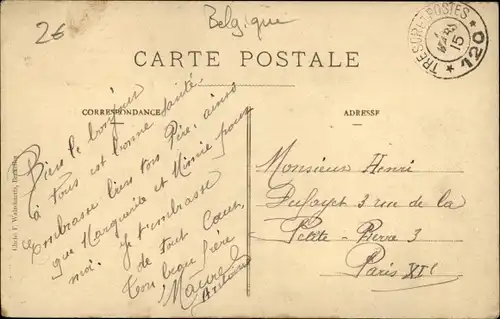 2€
Belgique
TRESOR ET POSTES
MARS
15
* 120 *
CARTE POSTALE
CORRESPONDANCE
ADRESSE
Bien le bonjour
à tous et bonne santé.
Embrasse bien ton Père, ainsi
que Marguerite et Mimie pour
moi. Je t'embrasse
de tout Coeur,
Ton beau frère
Monsieur Henri
3 rue de la
Petite-Pierre 3
Paris XIe